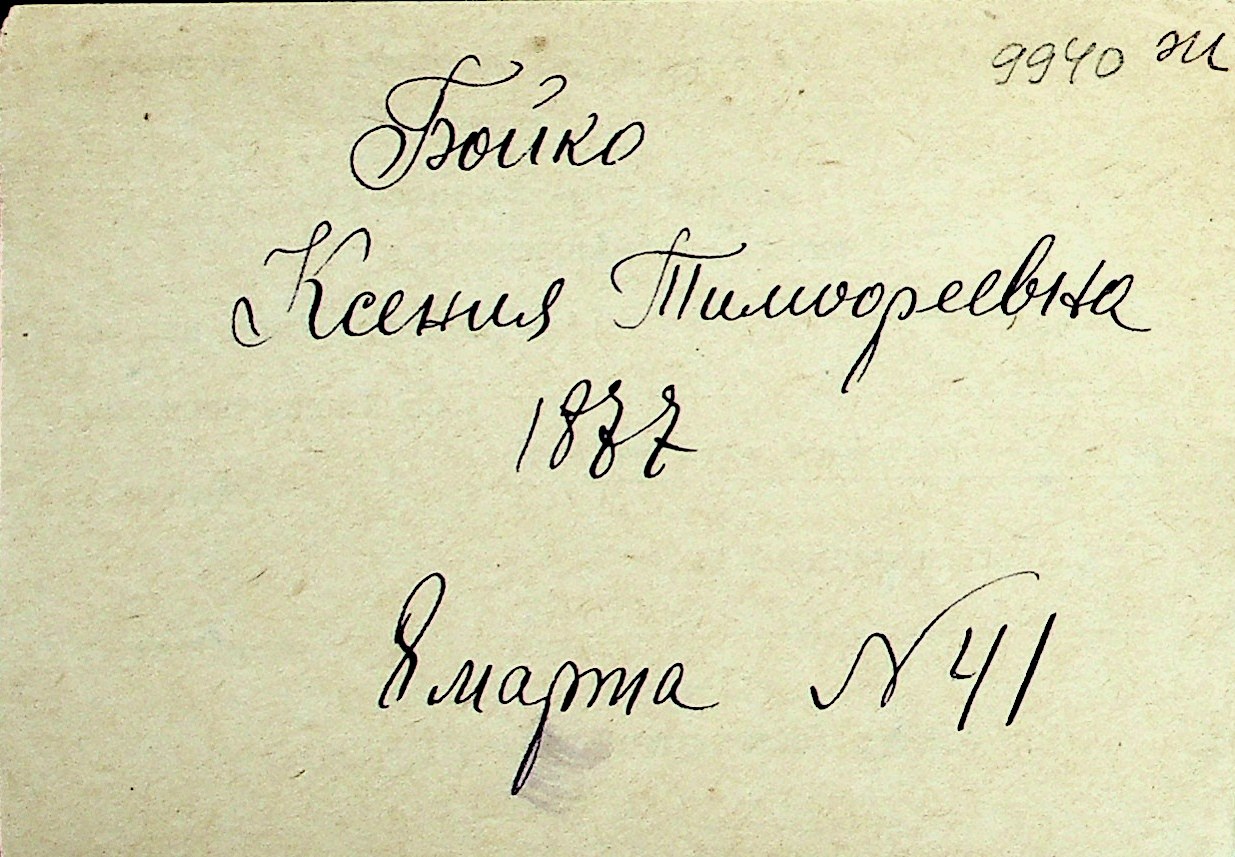 9940 ж
Бойко
Ксения Тимофеевна
1877
8 марта N 41